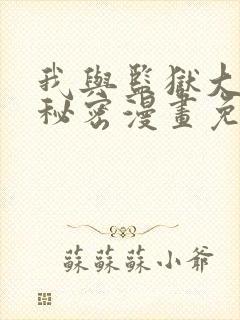 我與監獄大
秘密漫畫免
蘇蘇蘇小爺